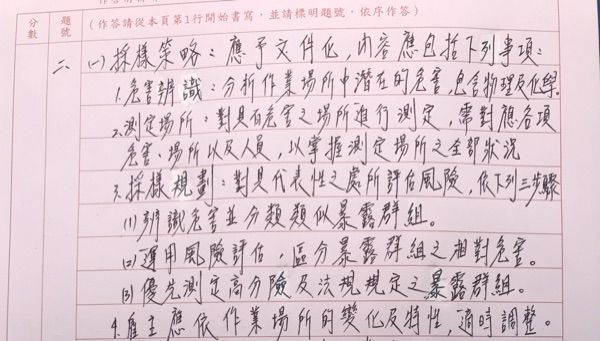 分數 題號 (作答請從本頁第1行開始書寫,並請標明題號,依序作答)
二、(一)採樣策略:應予文件化,內容應包括下列事項:
1.危害辨識:分析作業場所中潛在的危害,包含物理及化學。
2.測定場所:對具有危害之場所進行測定,需對應各項
危害、場所以及人員,以掌握測定場所之全部狀況
3.採樣規劃:對具代表性之處所評估風險,依下列三步驟
(1)辨識危害並分類類似暴露群組。
(2)運用風險評估,區分暴露群組之相對危害。
(3)優先測定高分險及法規規定之暴露群組。
4.雇主應依作業場所的變化及特性,適時調整。